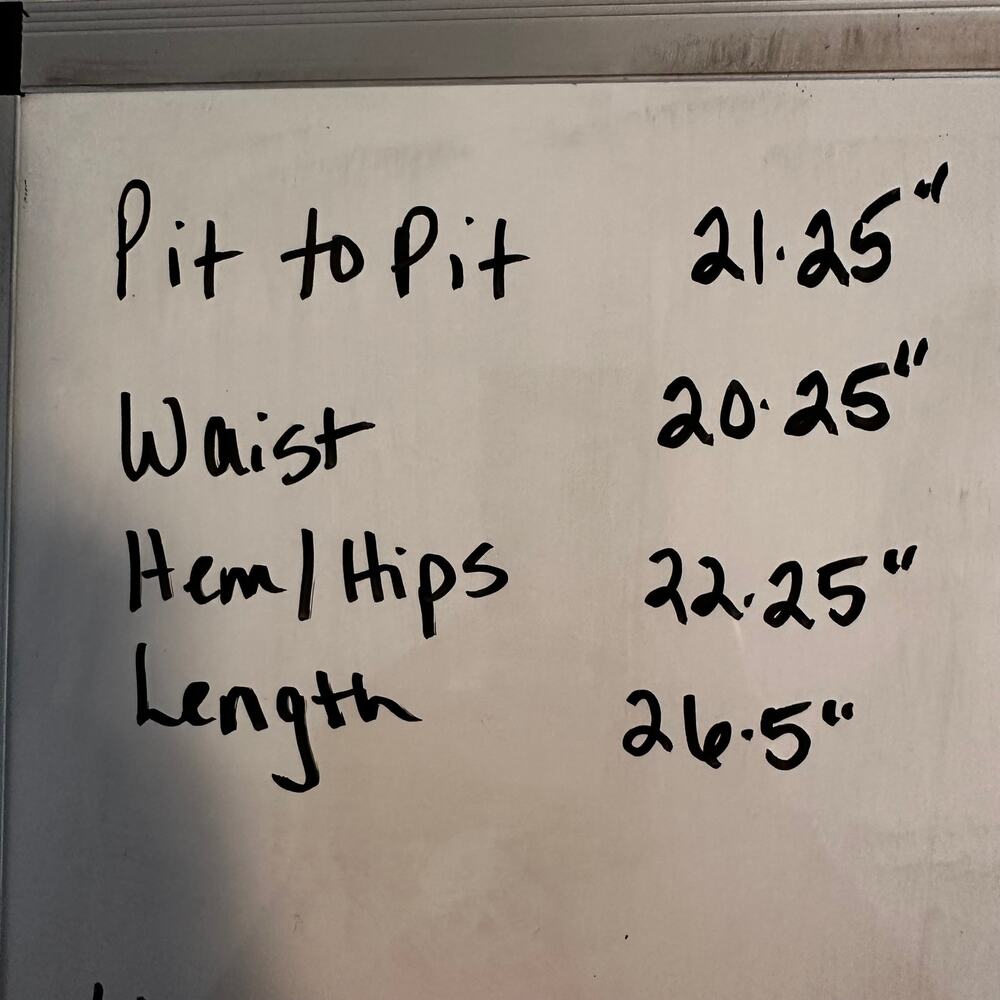 Pit to Pit 21.25"
Waist 20.25"
Hem/Hips 22.25"
Length 26.5"